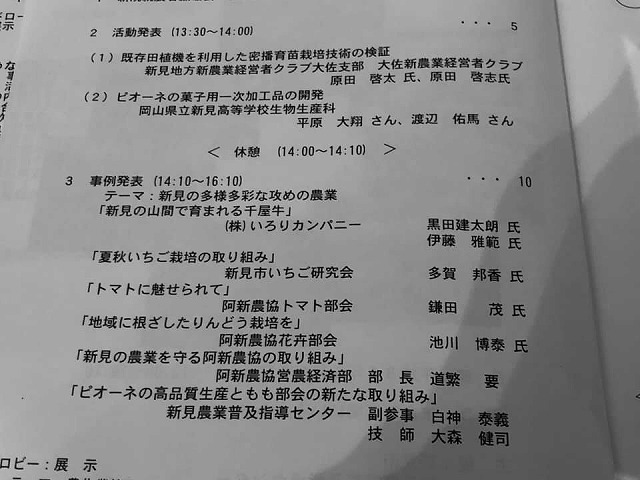 2 活動発表 (13:30～14:00) ・・・ 5
(1) 既存田植機を利用した密播育苗栽培技術の検証
新見地方新農業経営者クラブ大佐支部 大佐新農業経営者クラブ
原田 啓太 氏、原田 啓志氏
(2) ピオーネの菓子用一次加工品の開発
岡山県立新見高等学校生物生産科
平原 大翔 さん、渡辺 佑馬 さん
＜ 休憩 (14:00～14:10) ＞
3 事例発表 (14:10～16:10) ・・・ 10
テーマ：新見の多様多彩な攻めの農業
「新見の山間で育まれる千屋牛」
(株) いろりカンパニー 黒田建太朗 氏
伊藤 雅範 氏
「夏秋いちご栽培の取り組み」
新見市いちご研究会 多賀 邦香 氏
「トマトに魅せられて」
阿新農協トマト部会 鎌田 茂 氏
「地域に根ざしたりんどう栽培を」
阿新農協花卉部会 池川 博泰 氏
「新見の農業を守る阿新農協の取り組み」
阿新農協営農経済部 部 長 道繁 要
「ピオーネの高品質生産ともも部会の新たな取り組み」
新見農業普及指導センター 副参事 白神 泰義
技 師 大森 健司
ロビー：展 示